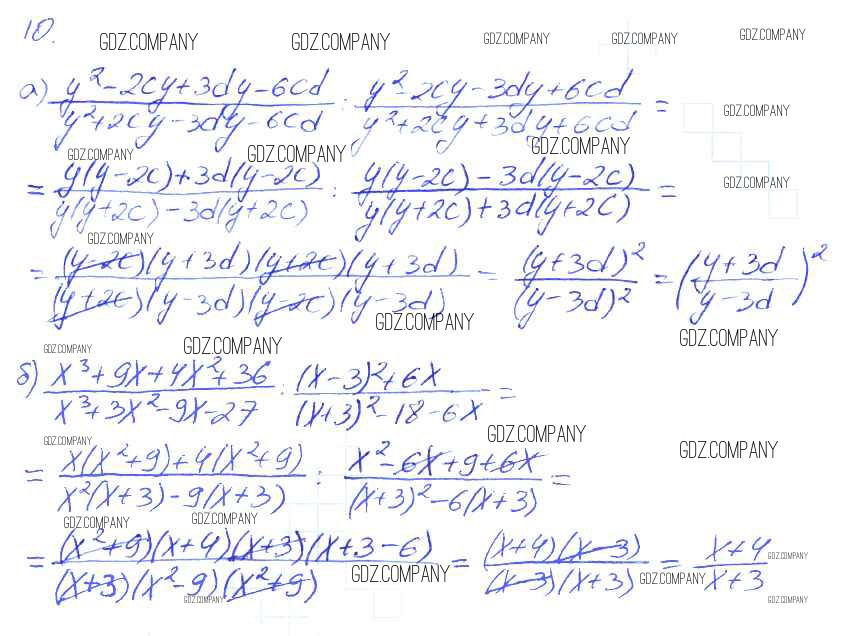 10.
GDZ.COMPANY GDZ.COMPANY GDZ.COMPANY GDZ.COMPANY GDZ.COMPANY
а) (y² - 2cy + 3dy - 6cd)/(y² + 2cy - 3dy - 6cd) : (y² - 2cy - 3dy + 6cd)/(y² + 2cy + 3dy + 6cd) =
GDZ.COMPANY
GDZ.COMPANY GDZ.COMPANY GDZ.COMPANY
= (y(y - 2c) + 3d(y - 2c))/(y(y + 2c) - 3d(y + 2c)) : (y(y - 2c) - 3d(y - 2c))/(y(y + 2c) + 3d(y + 2c)) =
GDZ.COMPANY
GDZ.COMPANY
= ((y - 2c)(y + 3d)(y + 2c)(y + 3d))/((y + 2c)(y - 3d)(y - 2c)(y - 3d)) = (y + 3d)²/(y - 3d)² = ((y + 3d)/(y - 3d))²
GDZ.COMPANY
GDZ.COMPANY GDZ.COMPANY GDZ.COMPANY
б) (x³ + 9x + 4x² + 36)/(x³ + 3x² - 9x - 27) : ((x - 3)² + 6x)/((x + 3)² - 18 - 6x) =
GDZ.COMPANY GDZ.COMPANY GDZ.COMPANY
= (x(x² + 9) + 4(x² + 9))/(x²(x + 3) - 9(x + 3)) : (x² - 6x + 9 + 6x)/((x + 3)² - 6(x + 3)) =
GDZ.COMPANY GDZ.COMPANY
= ((x² + 9)(x + 4)(x + 3)(x + 3 - 6))/((x + 3)(x² - 9)(x² + 9)) = ((x + 4)(x - 3))/((x - 3)(x + 3)) = (x + 4)/(x + 3)
GDZ.COMPANY
GDZ.COMPANY GDZ.COMPANY
GDZ.COMPANY GDZ.COMPANY